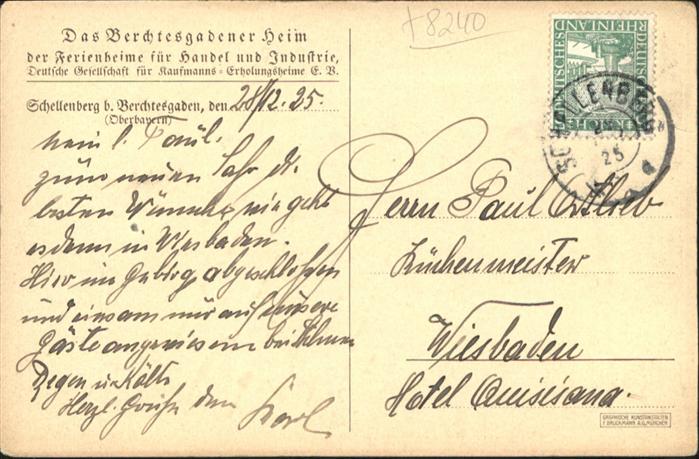 Das Berchtesgadener Heim
der Ferienheime für Handel und Industrie,
Deutsche Gesellschaft für Kaufmanns=Erholungsheime E. V.
Schellenberg b. Berchtesgaden, den 28/12.25.
(Oberbayern)
mein l. Paul.
zum neuen Jahr die
besten Wünsche, wie geht
es denn in Wiesbaden.
Hier im Gebirg abgeschlossen
und einsam nur auf unsere
Gäste angewiesen bei
Regen u. Kälte
Herzl. Grüße dein Karl
+8240
DEUTSCHES REICH
RHEINLAND
SCHELLENBERG
25
Herrn Paul Ertlieb
Küchenmeister
Wiesbaden
Hotel Quisisana.
GRAPHISCHE KUNSTANSTALTEN
F. BRUCKMANN A.G. MÜNCHEN